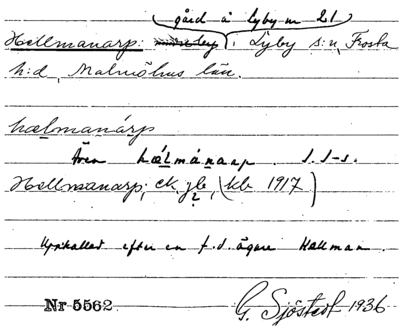 gård å Lyby nr 21
Hellmanarp: i Lyby s:n, Frosta
h:d, Malmöhus län.
hælmanárp
Även hælmánarp. S.S-s.
Hellmanarp, ek. jb, (kb 1917)
?
Uppkallad efter en f.d. ägare Hallman.
Nr 5562 G. Sjöstedt 1936